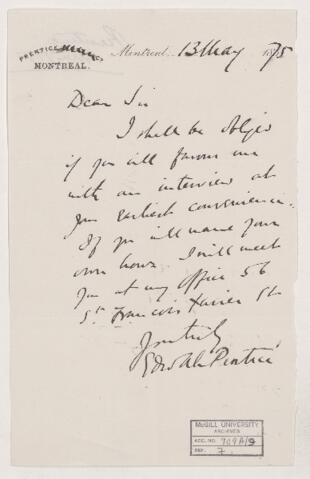 PRENTICE
MONTREAL.
Montreal, 13 May 1875
Dear Sir
I shall be obliged
if you will favour me
with an interview at
your earliest convenience.
If you will name your
own hour I will meet
you at my office 56
St. Francois Xavier St
Yours truly
Edw Alex Prentice
McGILL UNIVERSITY
ARCHIVES
ACC. NO. 909A/9
REF. 7